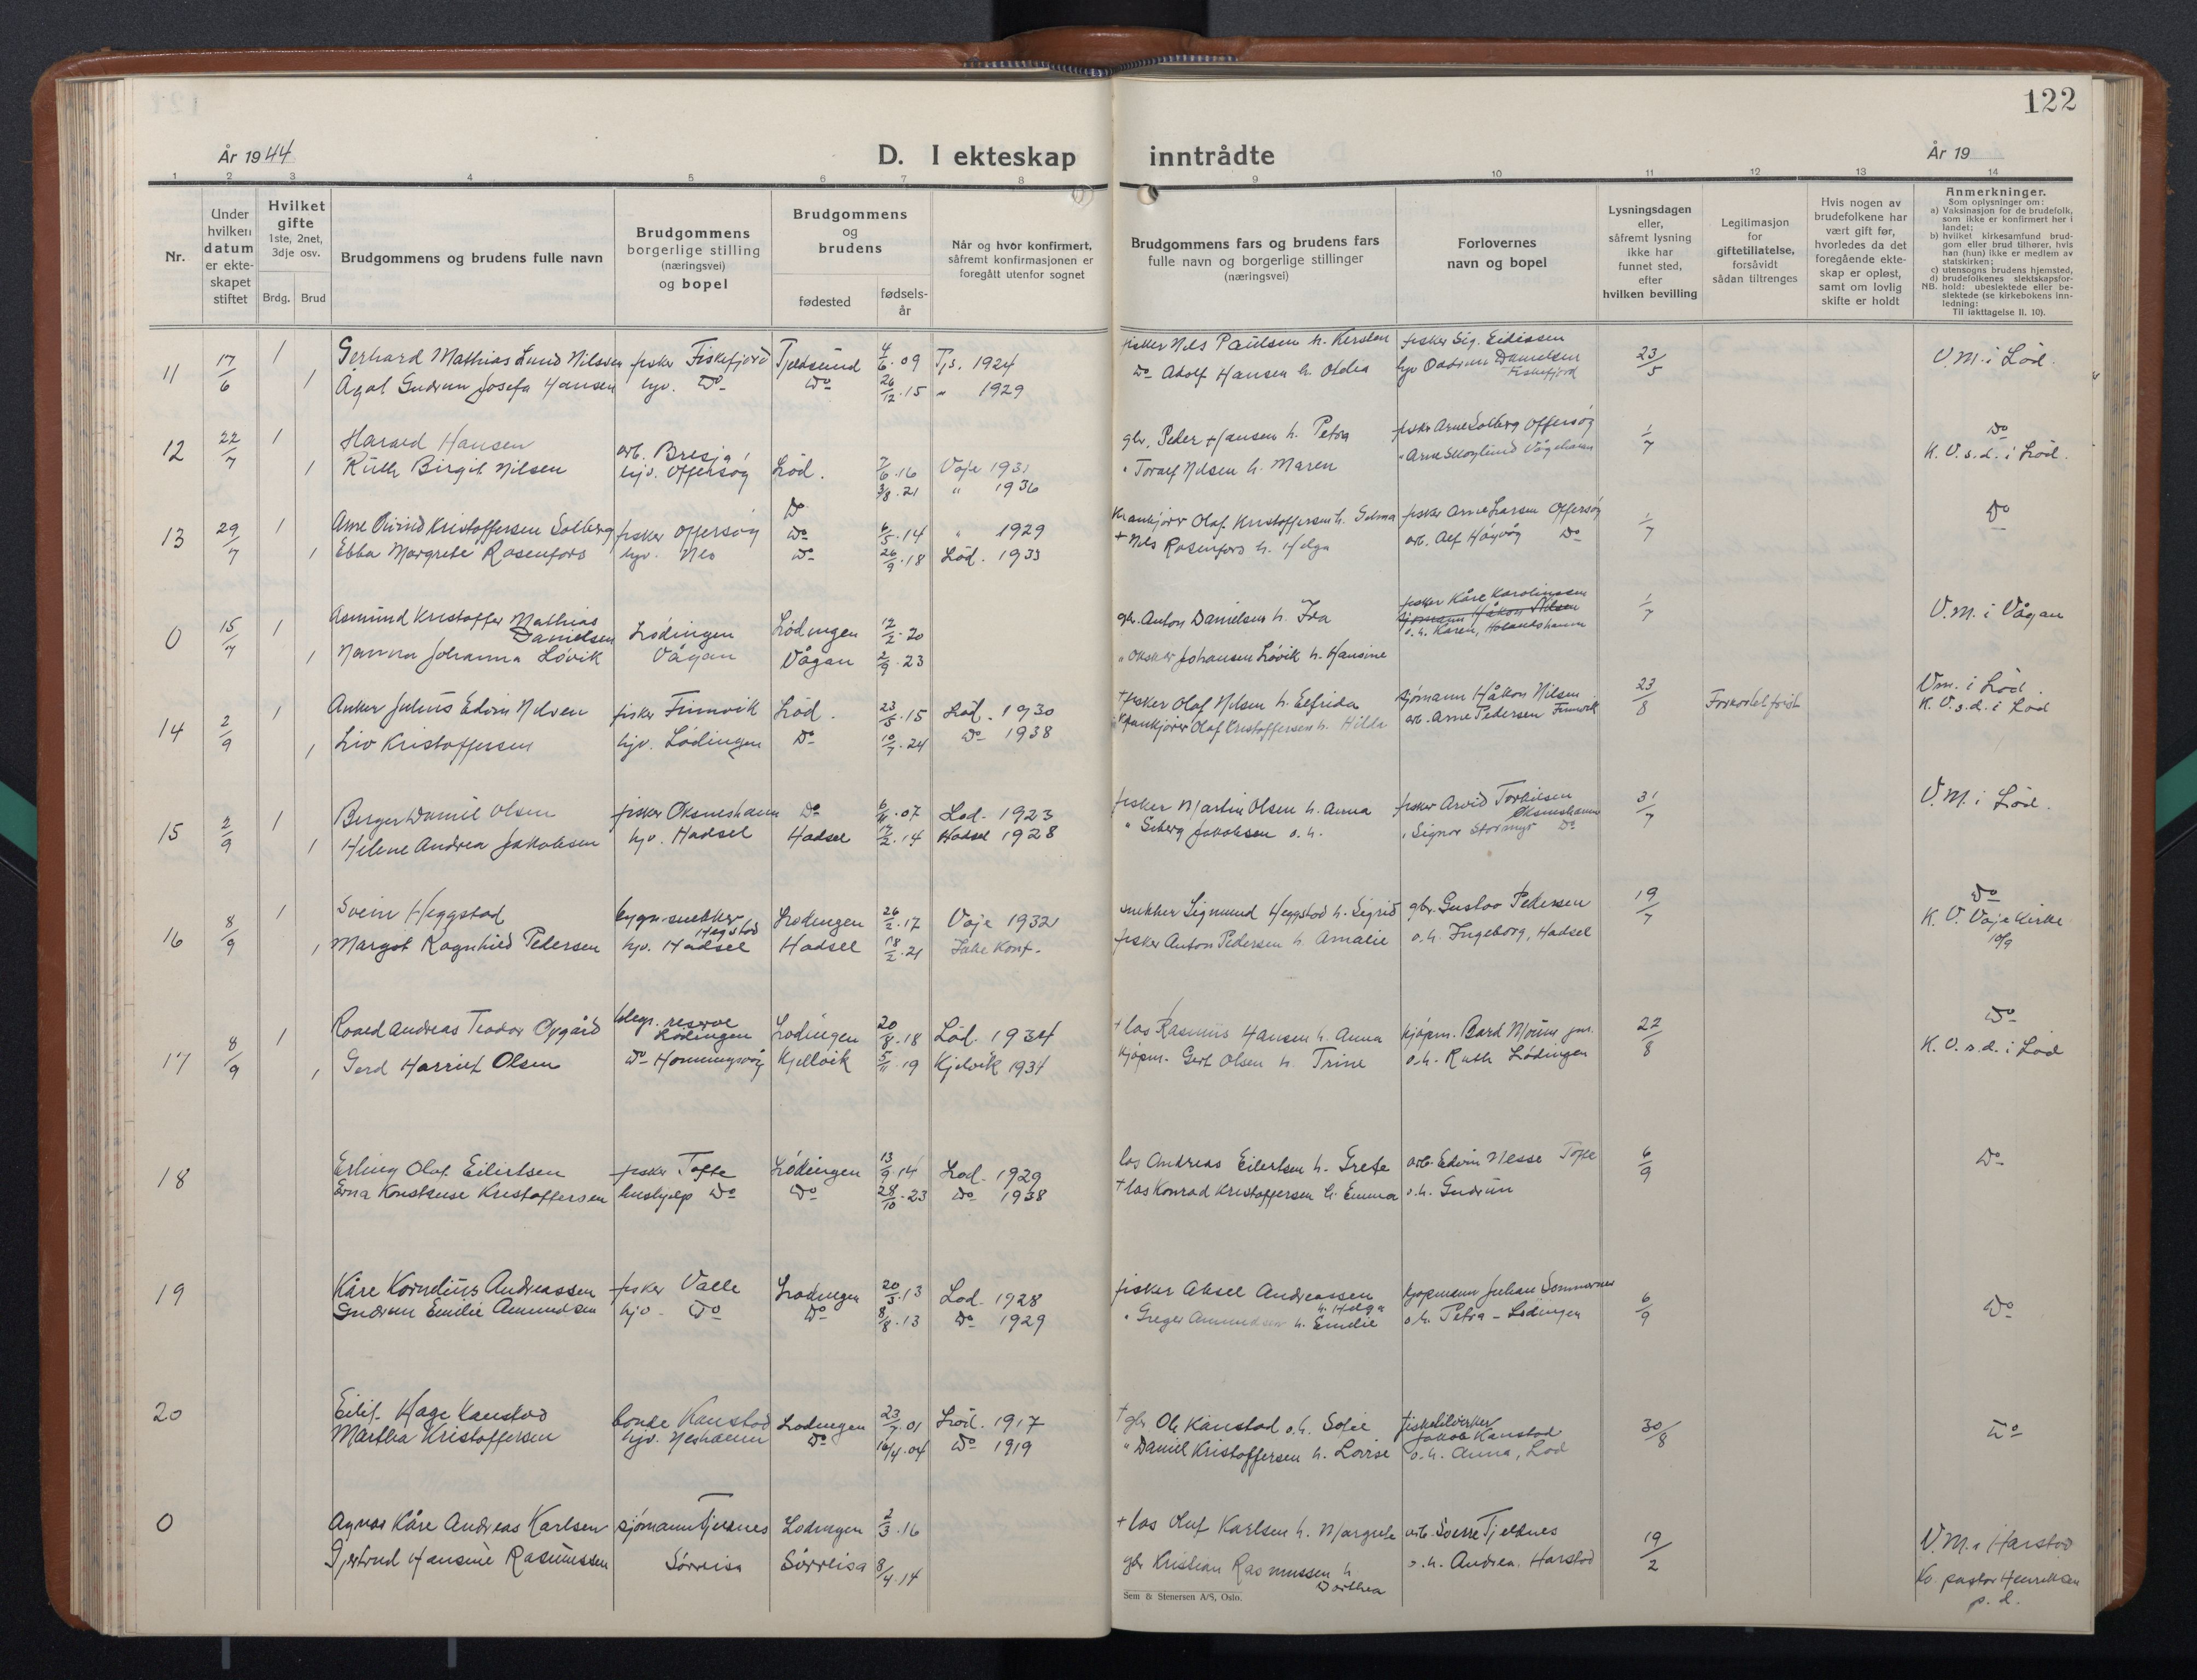 122
År 1944
D. I ekteskap inntrådte
År 19
1 2 3 4 5 6 7 8 9 10 11 12 13 14
Nr.
Under hvilken datum er ekte-skapet stiftet
Hvilket gifte 1ste, 2net, 3dje osv.
Brdg. Brud
Brudgommens og brudens fulle navn
Brudgommens borgerlige stilling (næringsvei) og bopel
Brudgommens og brudens
fødested
fødsels-år
Når og hvor konfirmert, såfremt konfirmasjonen er foregått utenfor sognet
Brudgommens fars og brudens fars fulle navn og borgerlige stillinger (næringsvei)
Forlovernes navn og bopel
Lysningsdagen eller, såfremt lysning ikke har funnet sted, efter hvilken bevilling
Legitimasjon for giftetillatelse, forsåvidt sådan tiltrenges
Hvis nogen av brudefolkene har vært gift før, hvorledes da det foregående ekte-skap er opløst, samt om lovlig skifte er holdt
Anmerkninger.
Som oplysninger om:
a) Vaksinasjon for de brudefolk, som ikke er konfirmert her i landet;
b) hvilket kirkesamfund brud-gom eller brud tilhører, hvis han (hun) ikke er medlem av statskirken;
c) utensogns brudens hjemsted,
d) brudefolkenes slektskapsfor-hold: ubeslektede eller be-slektede (se kirkebokens inn-ledning:
NB.
Til iakttagelse II. 10).
11 17/6 1 Gerhard Mathias Lund Nilsen fisker Fiskefjord Tjeldsund 4/6.09 Tjs. 1924 fisker Nils Paulsen h. Kersten fisker Sig. Eidissen 23/5 V.M. i Lød.
1 Ågot Gudrun Josefa Hansen hjv. Do Do 26/12.15 " 1929 Do Adolf Hansen h. Otelia Danielsen Fiskefjord
12 22/7 1 Harald Hansen arb. Bresja gbr. Peder Hansen h. Petra fisker Arne Solberg Offersøy 1/7 Do
1 Ruth Birgit Nilsen hjv. Offersøy Lød. 7/6.16 Voje 1931 " Toralf Nilsen h. Maren " Arne Skoglund Vågehamn K.V.s.d. i Lød.
Do 3/8.21 " 1936
13 29/7 1 Arne Øivind Kristoffersen Solberg fisker Offersøy Do 6/5.14 " 1929 Olaf Kristoffersen h. Selma fisker Arne Larsen Offersøy 1/7 Do
1 Ebba Margrete Rosenfors hjv. Nes Do 26/9.18 Lød. 1933 + Nils Rosenfors h. Helga arb. Alf Høyvåg Do
0 15/7 1 Asmund Kristoffer Mathias Danielsen Lødingen Lødingen 12/2.20 gbr. Anton Danielsen h. Ida fisker Kåre Karolinssen 1/7 V.M. i Vågan
sjømann Håkon Nilsen
o.h. Karen, Holandshamn
1 Nanna Johanna Løvik Vågan Vågan 2/9.23 " Oskar Johansen Løvik h. Hansine
14 2/9 1 Anker Julius Edvin Nilsen fisker Finnvik Lød. 23/5.15 Lød. 1930 + fisker Olaf Nilsen h. Elfrida sjømann Håkon Nilsen 23/8 Forkortet frist Vm. i Lød.
1 Liv Kristoffersen hjv. Lødingen Do 10/7.24 Do 1938 Olaf Kristoffersen h. Hilda arb. Arne Pedersen Finnvik K.V.s.d. i Lød
15 2/9 1 Birger Daniel Olsen fisker Øksneshamn Do 6/11.07 Lød. 1923 fisker Martin Olsen h. Anna fisker Arvid Torkilsen Øksneshamn 31/7 V.M. i Lød.
1 Helene Andrea Jakobsen hjv. Hadsel Hadsel 17/2.14 Hadsel 1928 " Seberg Jakobsen o.h. " Signor Stormyr Do
16 8/9 1 Svein Heggstad bygn.snekker Hegstad Lødingen 26/2.17 Voje 1932 snekker Sigmund Heggstad h. Sigrid gbr. Gustav Pedersen 19/7 Do
1 Margot Ragnhild Pedersen hjv. Hadsel Hadsel 18/2.21 Ikke konf. fisker Anton Pedersen h. Amalie o.h. Ingeborg, Hadsel K.V. Voje Kirke 10/9
17 8/9 1 Roald Andreas Teodor Oygård telegr. reserve Lødingen Lødingen 20/8.18 Lød. 1934 + los Rasmus Hansen h. Anna kjøpm. Bard jun. 22/8 Do
1 Gerd Harriet Olsen Do Honningsvåg Kjelvik 5/11.19 Kjelvik 1934 kjøpm. Gert Olsen h. Trine o.h. Ruth Lødingen K.V.s.d. i Lød
18 Erling Olaf Eilertsen fisker Tofte Lødingen 13/9.14 Lød. 1929 los Andreas Eilertsen h. Grete arb. Edvin Nesse Tofte 6/9 Do
Erna Konstanse Kristoffersen hushjelp Do Do 28/10.23 Do 1938 + los Konrad Kristoffersen h. Emma o.h. Gudrun
19 Kåre Kornelius Andreassen fisker Valle Lødingen 20/3.13 Lød. 1928 fisker Aksel Andreassen h. Helga kjøpmann Julian Sommernes 6/9 Do
Gudrun Emilie Amundsen hjv. Do Do 8/8.13 Do 1929 " Greger Amundsen h. Emelie o.h. Petra - Lødingen
20 Eilif Hage Kanstad bonde Kanstad Lødingen 23/7.01 Lød. 1917 + gbr Ole Kanstad o.h. Sofie Jakob Kanstad 30/8 Do
Martha Kristoffersen hjv. Neshamn Do 16/4.04 Do 1919 " Daniel Kristoffersen h. Lovise o.h. Anna, Lød
0 Agnar Kåre Andreas Karlsen sjømann Tjeldnes Lødingen 2/3.16 + los Oluf Karlsen h. Margrete arb. Sverre Tjeldnes 19/2 V.M. i Harstad
Gjertrud Hansine Rasmussen Sørreisa Sørreisa 8/4.14 gbr Kristian Rasmussen h Dorthea o.h. Andrea. Harstad Ko. pastor Henriksen p.d.
Sem & Stenersen A/S, Oslo.